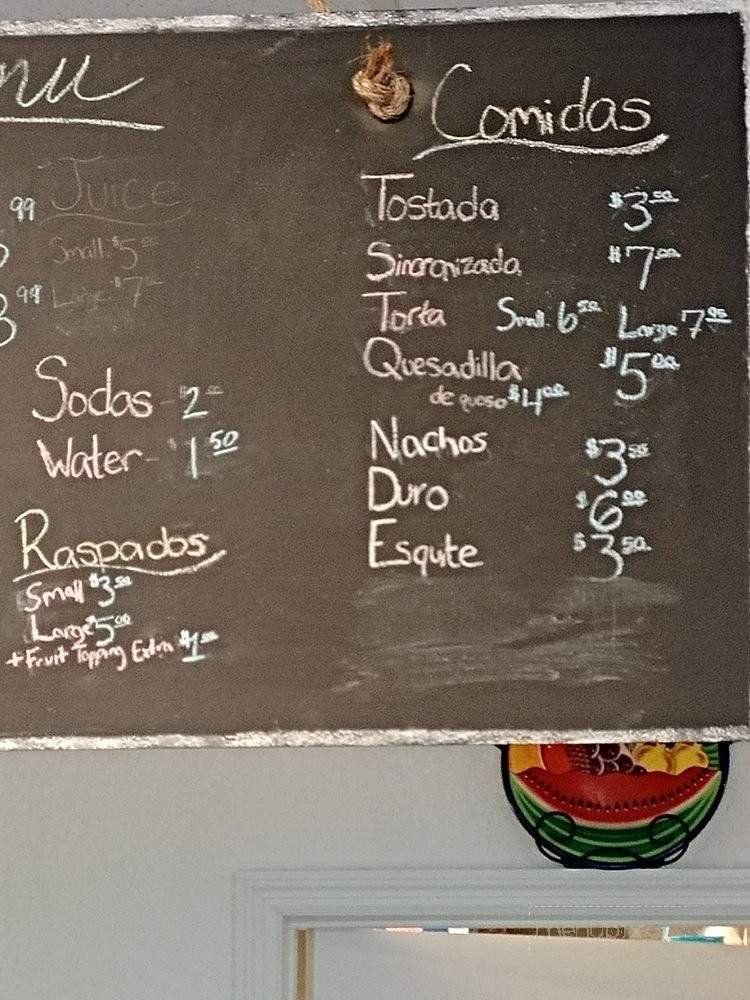 nu
99 Juice
Small $5
99 Large $7
Sodas - $2
Water - $1.50
Raspados
Small $3.50
Large $5.00
+ Fruit Topping Extra $1.00
Comidas
Tostada $3.50
Sincronizada $7.00
Torta Small 6.50 Large 7.95
Quesadilla $5.00
de queso $4.00
Nachos $3.50
Duro $6.00
Esqute $3.50